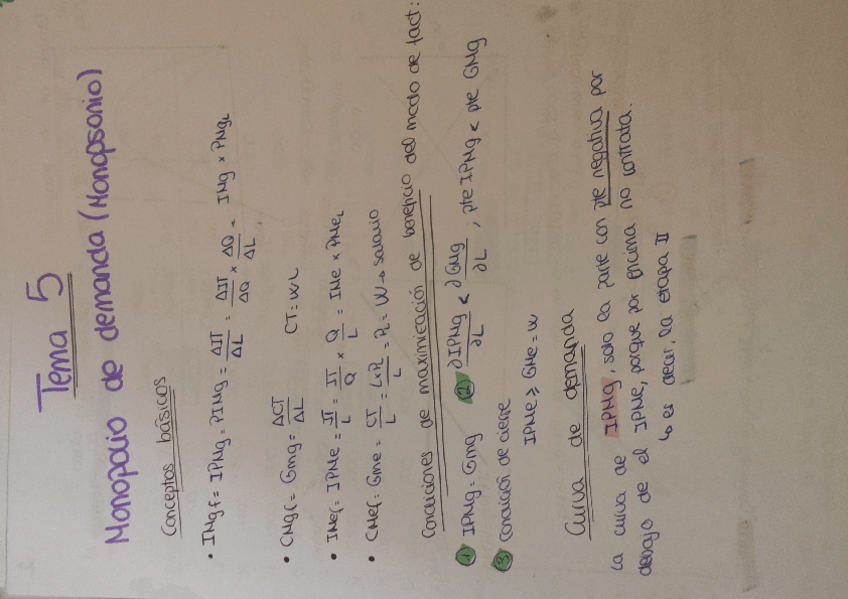 Tema 5
Monopolio de demanda (Monopsonio)
Conceptos básicos
• IMgf = IPMg = PIMg = ΔIT/ΔL = ΔIT/ΔQ × ΔQ/ΔL = IMg × PMgL
• CMgf = GMg = ΔCT/ΔL CT = W·L
• IMef = IPMe = IT/L = IT/Q × Q/L = IMe × PMeL
• CMef = GMe = CT/L = L×PL/L = PL = W → salario
Condiciones de maximización de beneficio del mcdo de fact:
① IPMg = GMg ② ∂IPMg/∂L < ∂GMg/∂L ; pte IPMg < pte GMg
③ condición de cierre
IPMe ≥ GMe = W
Curva de demanda
La curva de IPMg, solo la parte con pte negativa por
debajo de el IPMe, porque por encima no contrata.
↳ es decir, la etapa II